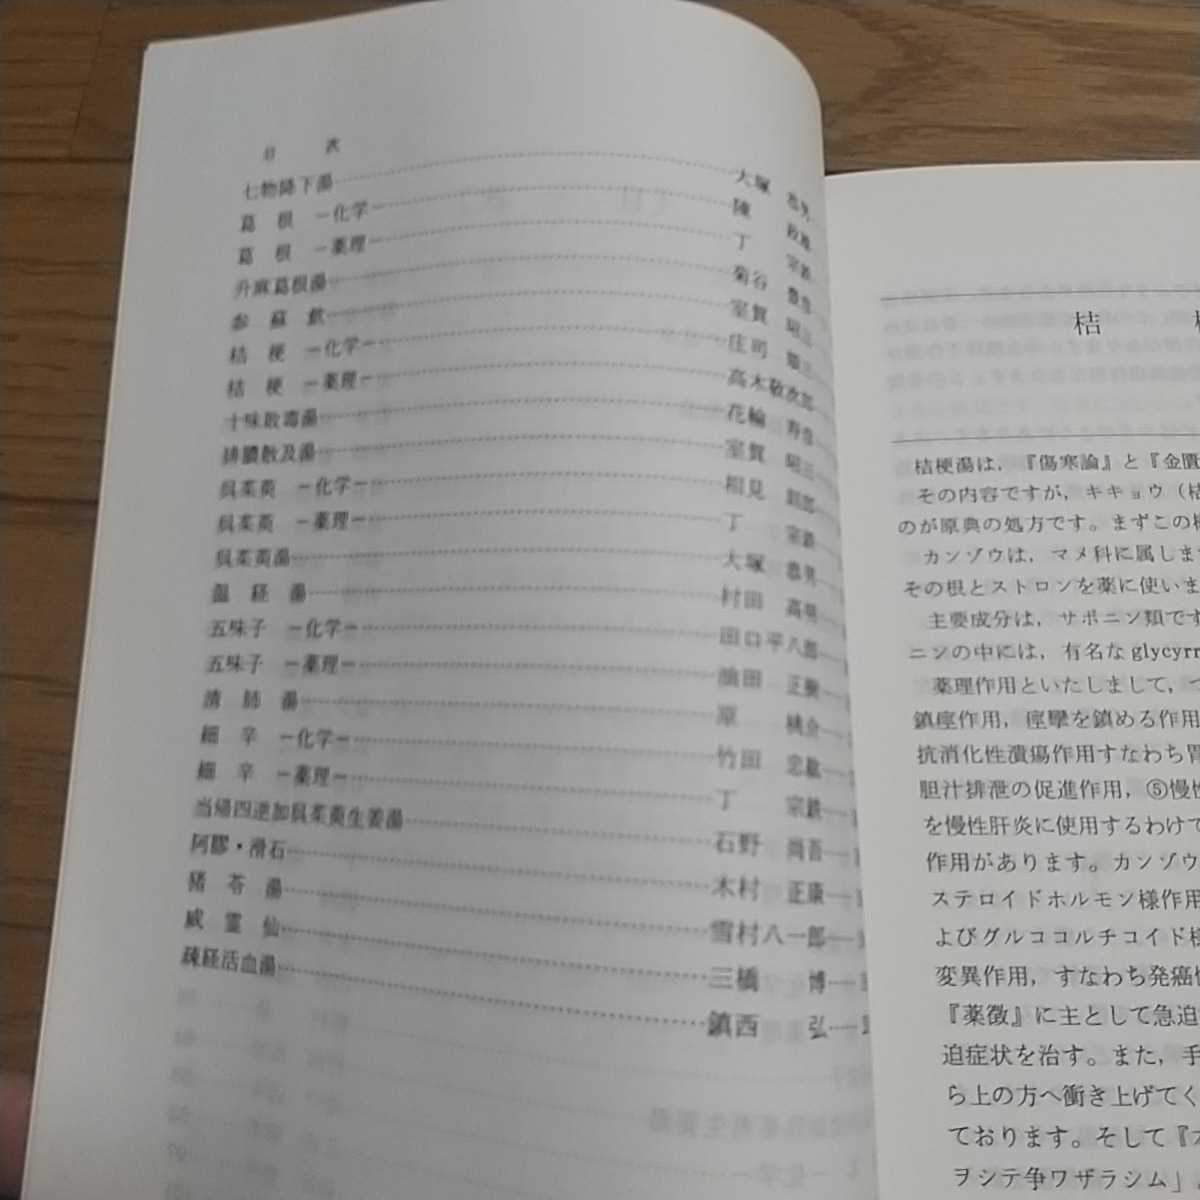 目　次
七物降下湯 大塚　恭男
葛　根　―化学― 陳　政雄
葛　根　―薬理― 丁　宗鉄
升麻葛根湯 菊谷　豊彦
参　蘇　飲 室賀　昭三
桔　梗　―化学― 庄司　順三
桔　梗　―薬理― 高木敬次郎
十味敗毒湯 花輪　寿彦
排膿散及湯 室賀　昭三
呉茱萸　―化学― 相見　則郎
呉茱萸　―薬理― 丁　宗鉄
呉茱萸湯 大塚　恭男
温　経　湯 村田　高明
五味子　―化学― 田口平八郎
五味子　―薬理― 油田　正樹
清　肺　湯 原　桃介
細　辛　―化学― 竹田　忠紘
細　辛　―薬理― 丁　宗鉄
当帰四逆加呉茱萸生姜湯 石野　尚吾
阿膠・滑石 木村　正康
猪　苓　湯 雪村八一郎
威　霊　仙 三橋　博
疎経活血湯 鎮西　弘
桔
桔梗湯は，『傷寒論』と『金匱
その内容ですが，キキョウ（桔
のが原典の処方です。まずこの
カンゾウは，マメ科に属しま
その根とストロンを薬に使いま
主要成分は，サポニン類です
ニンの中には，有名な glycyrr
薬理作用といたしまして，
鎮痙作用，痙攣を鎮める作用
抗消化性潰瘍作用すなわち胃
胆汁排泄の促進作用，⑤慢性
を慢性肝炎に使用するわけで
作用があります。カンゾウ
ステロイドホルモン様作用
よびグルココルチコイド様
変異作用，すなわち発癌
『薬徴』に主として急迫
迫症状を治す。また，手
ら上の方へ衝き上げてく
ております。そして『
ヲシテ争ワザラシム」